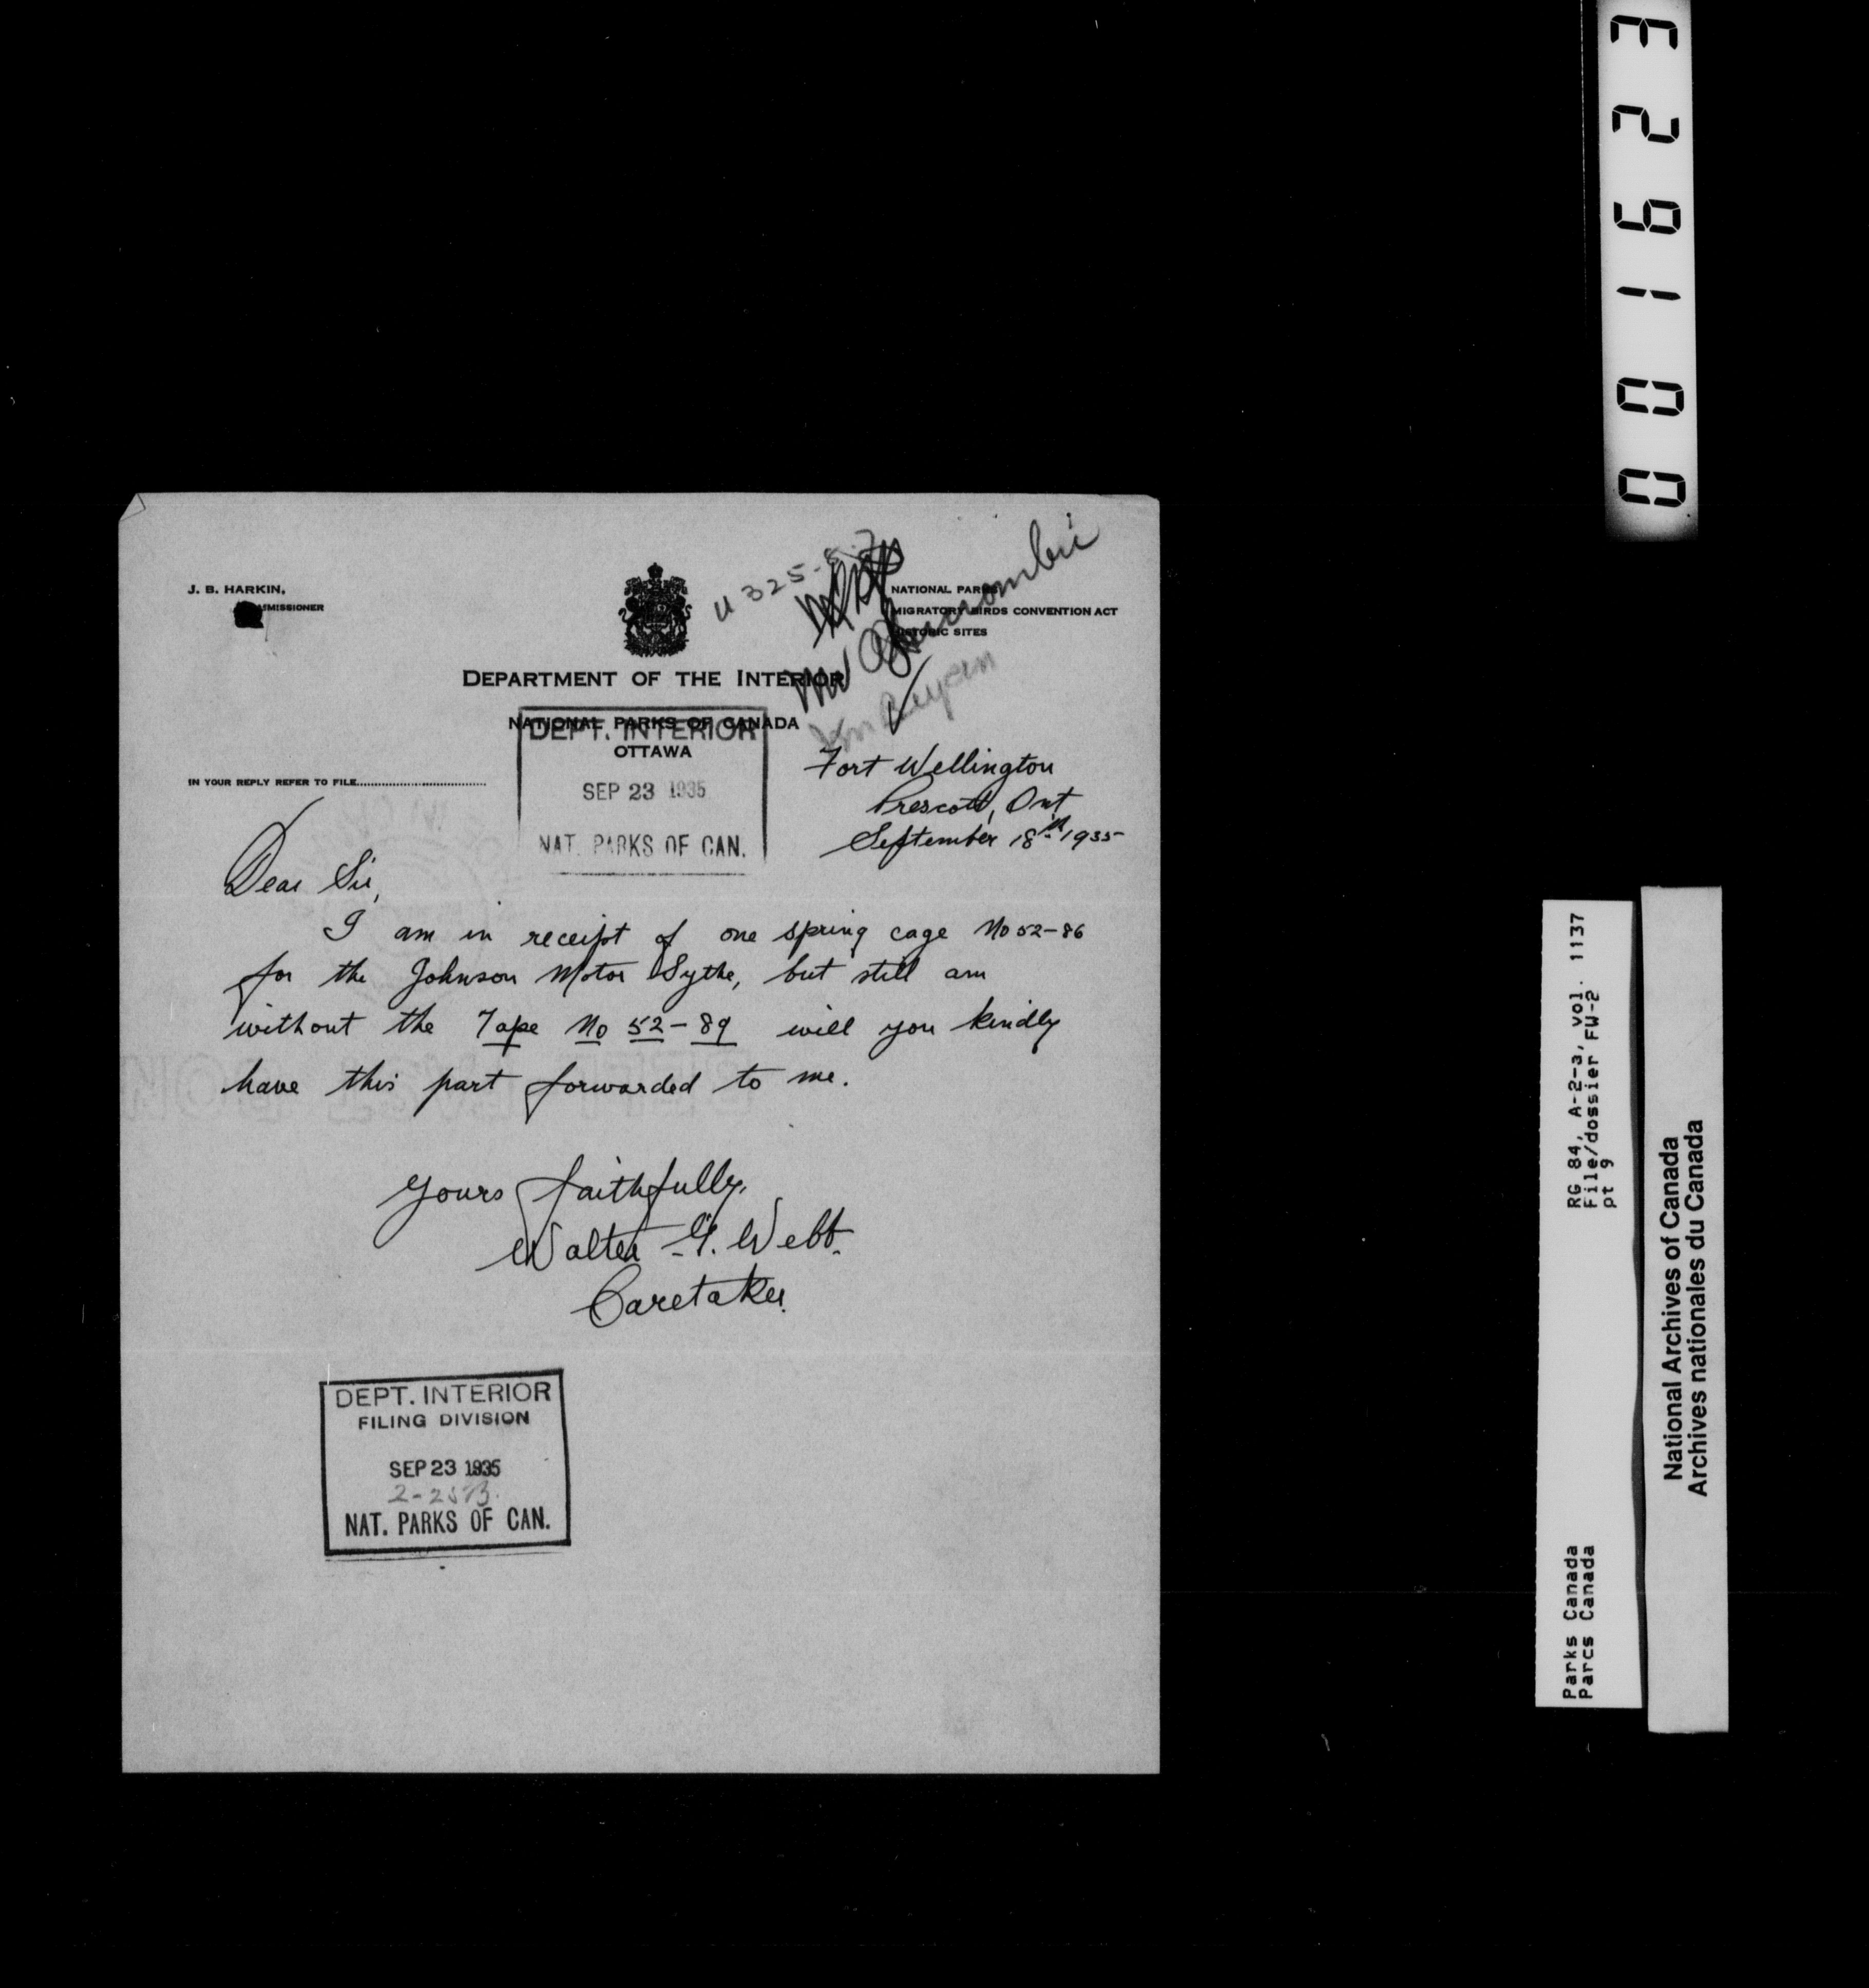 001623
J. B. HARKIN,
U 325-8-7
NATIONAL PARKS
MIGRATORY BIRDS CONVENTION ACT
HISTORIC SITES
Mr
DEPARTMENT OF THE INTERIOR
NATIONAL PARKS OF CANADA
OTTAWA
IN YOUR REPLY REFER TO FILE
DEPT. INTERIOR
SEP 23 1935
NAT. PARKS OF CAN.
Fort Wellington
Prescott, Ont
September 18th 1935
Dear Sir,
I am in receipt of one spring cage No 52-86
for the Johnson Motor Sythe, but still am
without the Tape No 52-89 will you kindly
have this part forwarded to me.
Yours faithfully,
Walter G. Webb.
Caretaker.
DEPT. INTERIOR
FILING DIVISION
SEP 23 1935
NAT. PARKS OF CAN.
RG 84, A-2-3, vol. 1137
File/dossier FW-2
pt 9
Parks Canada
Parcs Canada
National Archives of Canada
Archives nationales du Canada